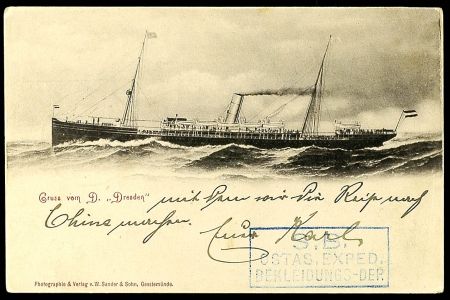 Gruss vom D. „Dresden“
mit dem wir die Reise nach
China machen. Euer Karl
S.B.
OSTAS. EXPED.
BEKLEIDUNGS-DEP.
Photographie & Verlag v. W. Sander & Sohn, Geestemünde.